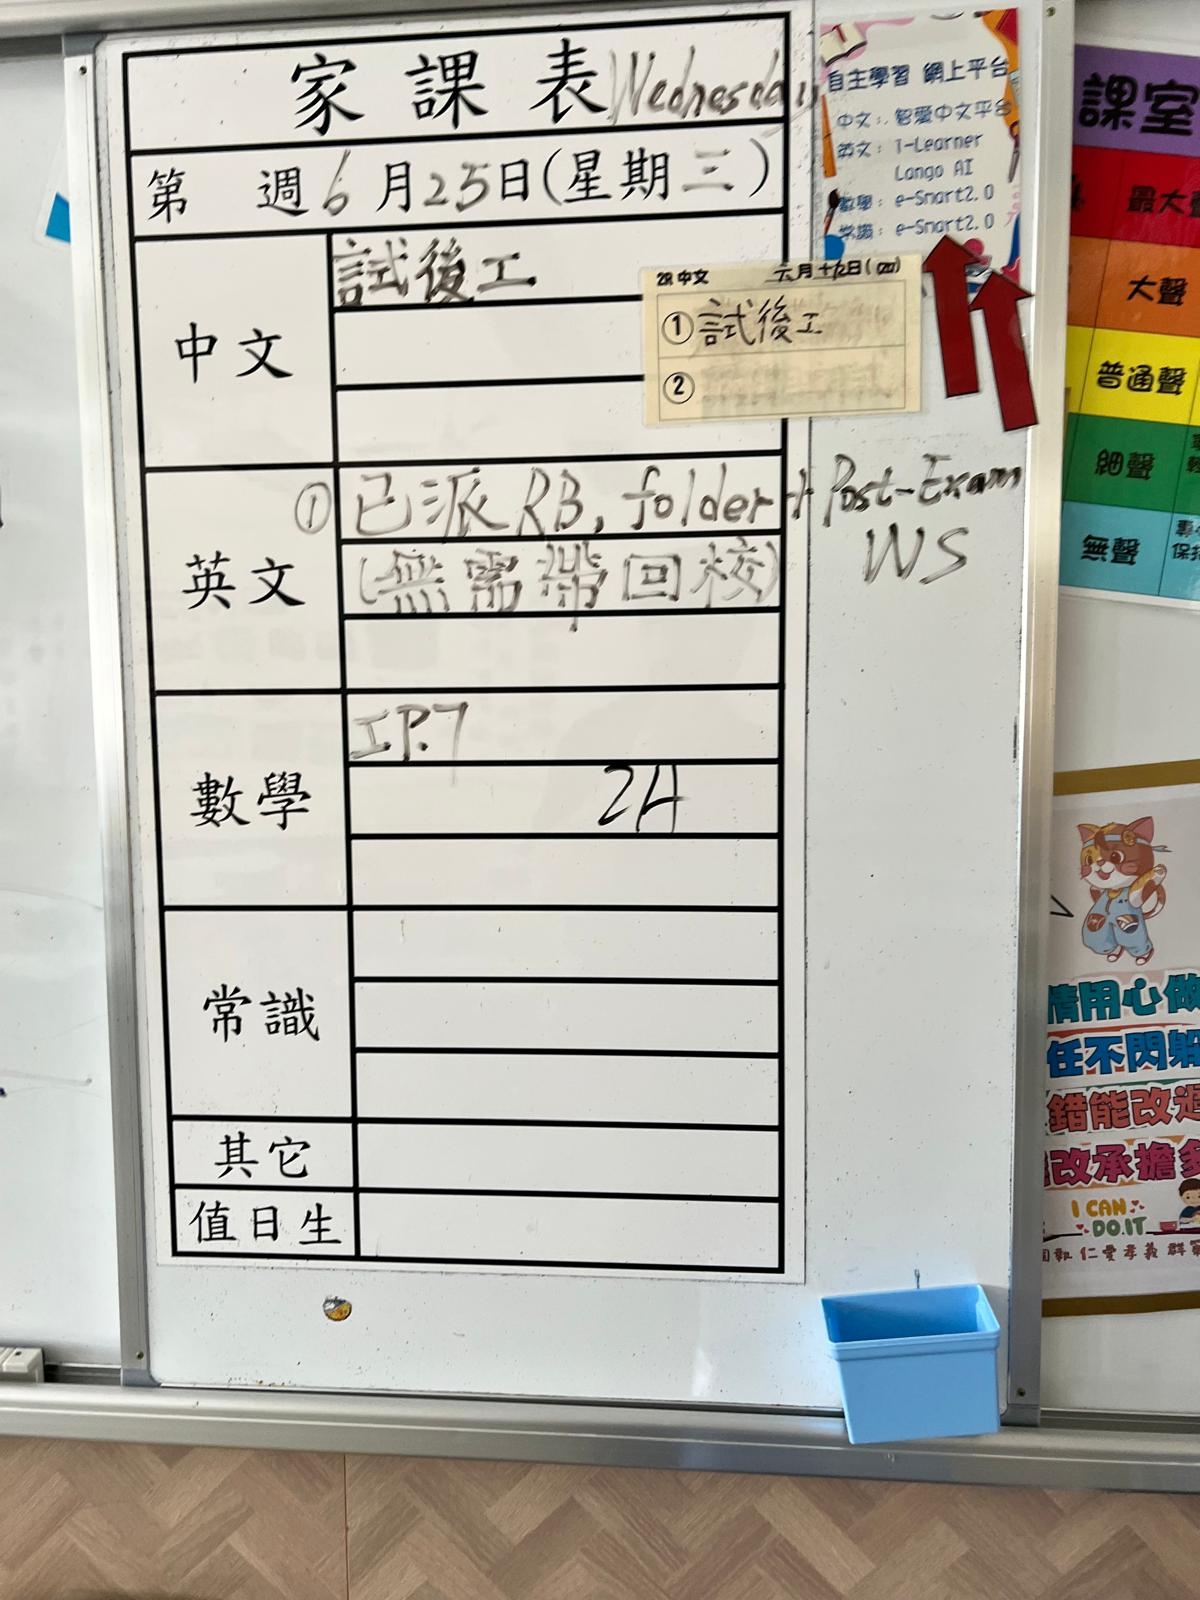 家課表 Wednesday
第 週 6月25日(星期三)
中文
試後工
2R 中文
①試後工
②
英文
① 已派 RB, folder + Post-Exam
WS
(無需帶回校)
數學
工P.7
2A
常識
其它
值日生
自主學習 網上平台
中文: 智愛中文平台
英文: i-Learner
Lango AI
數學: e-Smart2.0
常識: e-Smart2.0
課室
最大聲
大聲
普通聲
細聲
無聲
情用心做
任不閃躲
錯能改過
改承擔多
I CAN
DO.IT
仁愛孝義